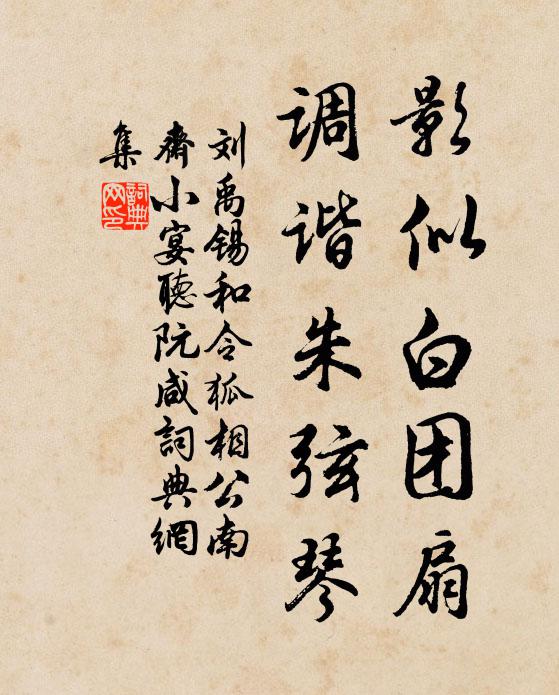 影似白团扇
调谐朱弦琴
刘禹锡和令狐相公南
斋小宴聽阮咸詞典網
集
詞典网印